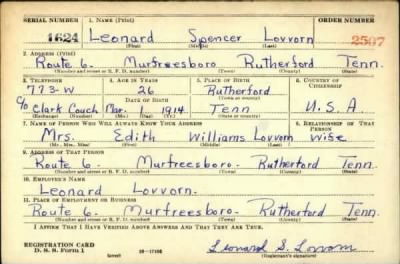 SERIAL NUMBER 1. NAME (Print) ORDER NUMBER
1624 Leonard Spencer Lovvorn 2507
(First) (Middle) (Last)
2. ADDRESS (Print)
Route 6. Murfreesboro Rutherford Tenn.
(Number and street or R. F. D. number) (Town) (County) (State)
3. TELEPHONE 4. AGE IN YEARS 5. PLACE OF BIRTH 6. COUNTRY OF CITIZENSHIP
773-W 26 Rutherford
DATE OF BIRTH (Town or county)
c/o Clark Couch Mar. 1914 Tenn U.S.A
(Exchange) (Number) (Mo.) (Day) (Yr.) (State or country)
7. NAME OF PERSON WHO WILL ALWAYS KNOW YOUR ADDRESS 8. RELATIONSHIP OF THAT PERSON
Mrs. Edith Williams Lovvorn Wife
(Mr., Mrs., Miss) (First) (Middle) (Last)
9. ADDRESS OF THAT PERSON
Route 6. Murfreesboro Rutherford Tenn
(Number and street or R. F. D. number) (Town) (County) (State)
10. EMPLOYER'S NAME
Leonard Lovvorn.
11. PLACE OF EMPLOYMENT OR BUSINESS
Route 6- Murfreesboro- Rutherford Tenn.
(Number and street or R. F. D. number) (Town) (County) (State)
I AFFIRM THAT I HAVE VERIFIED ABOVE ANSWERS AND THAT THEY ARE TRUE.
REGISTRATION CARD
D. S. S. Form 1 (over) Leonard S. Lovvorn
(Registrant's signature)